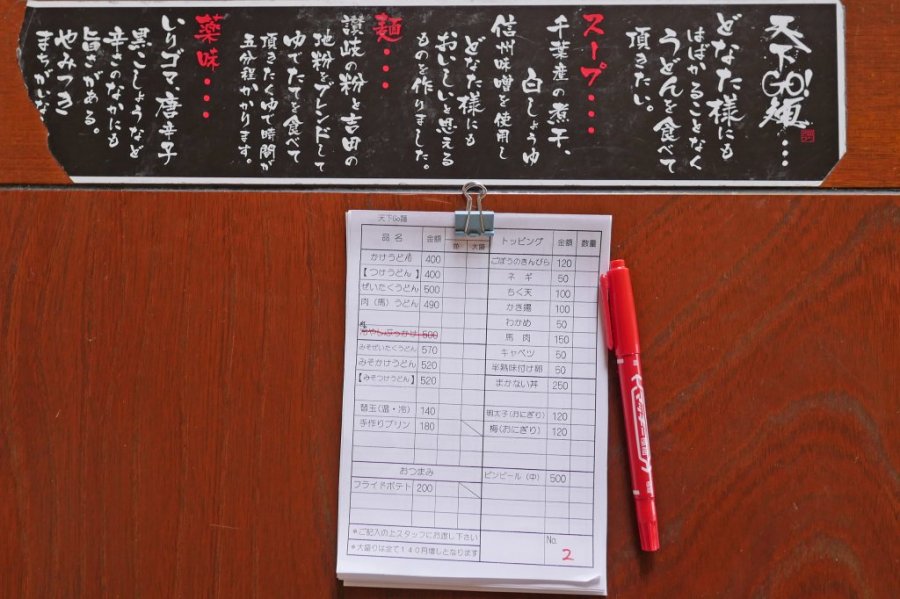 天下GO!麺…
どなた様にも
はばかることなく
うどんを食べて
頂きたい。
スープ…
千葉産の煮干、
白しょうゆ
信州味噌を使用し
どなた様にも
おいしいと思える
ものを作りました。
麺…
讃岐の粉と吉田の
地粉をブレンドして
ゆでたてを食べて
頂きたくゆで時間が
五分程かかります。
薬味…
いりゴマ、唐辛子
黒こしょうなど
辛さのなかにも
旨さがある。
やみつき
まちがいな
天下Go麺
品名 金額 大盛 トッピング 金額 数量
かけうどん 400 ごぼうのきんぴら 120
【つけうどん】 400 ネギ 50
ぜいたくうどん 500 ちく天 100
肉(馬)うどん 490 かき揚 100
わかめ 50
冷やしぶっかけ 500 馬肉 150
みそぜいたくうどん 570 キャベツ 50
みそかけうどん 520 半熟味付け卵 50
【みそつけうどん】 520 まかない丼 250
替玉(温・冷) 140 明太子(おにぎり) 120
手作りプリン 180 梅(おにぎり) 120
おつまみ ビンビール(中) 500
フライドポテト 200
*ご記入の上スタッフにお渡し下さい
*大盛りは全て140円増しとなります
No. 2